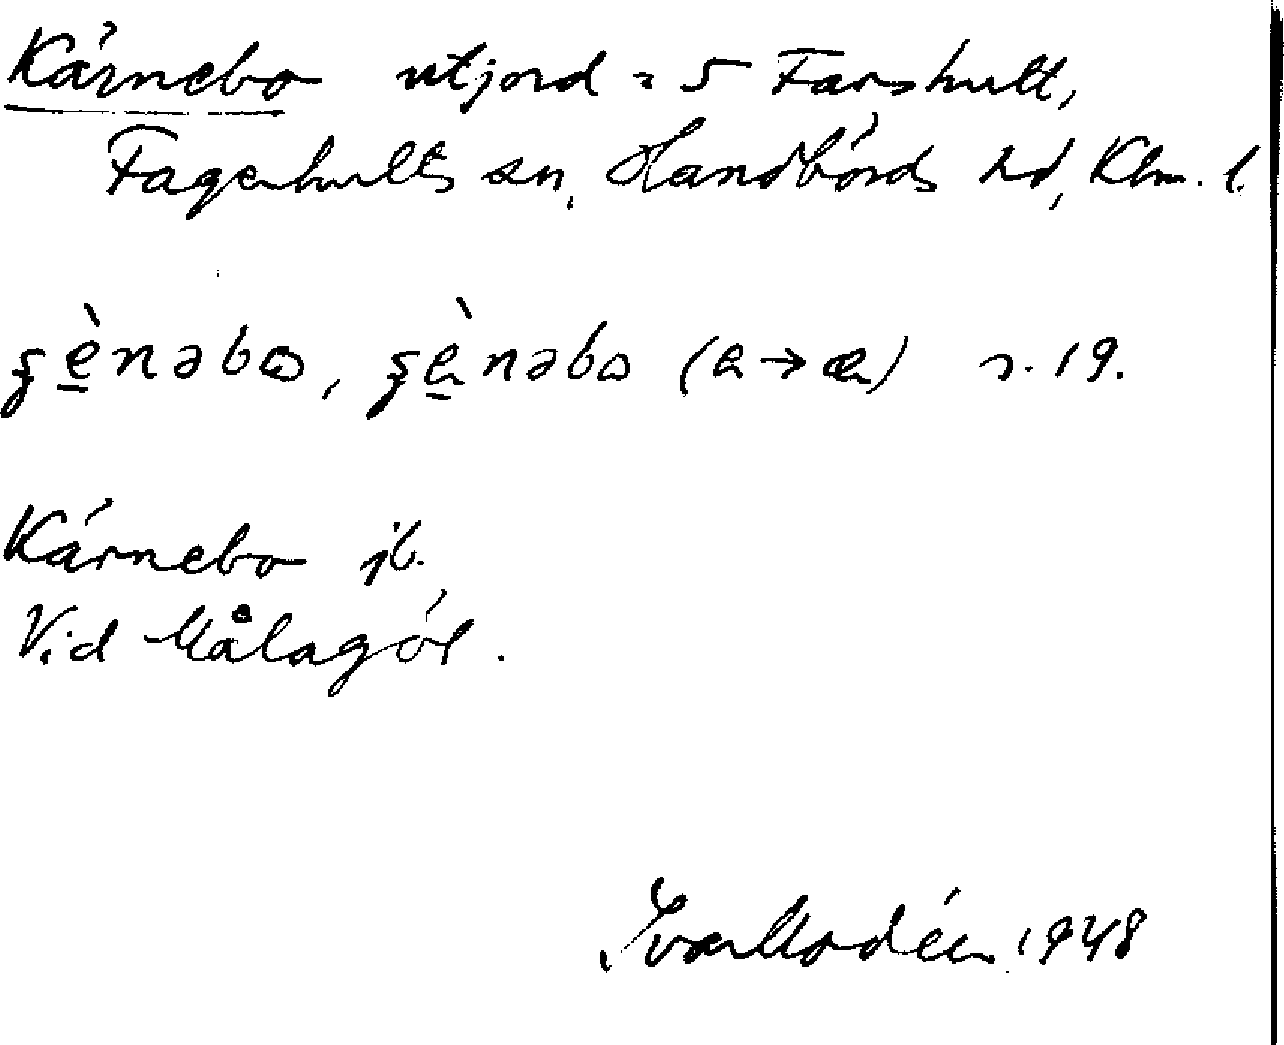 Kärnebo utjord = 5 Farshult,
Fagerhults sn, Handbörds hd, Klm. l.
, (a→æ) s. 19.
Kärnebo jb.
Vid Målagöl.
Ivar Modéer 1948